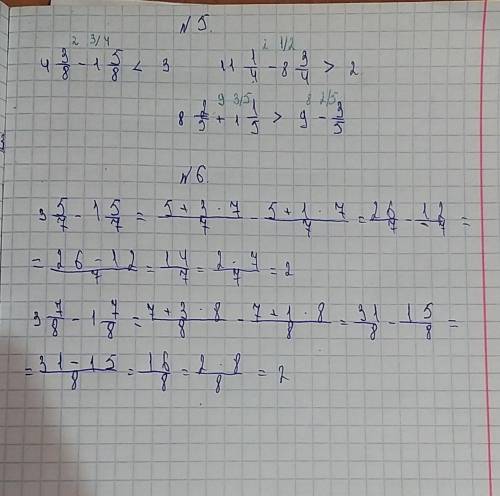 №5.
2 3/4 2 1/2
4 3/8 - 1 5/8 < 3 11 1/4 - 8 3/4 > 2
9 3/5 8 2/5
8 2/5 + 1 1/5 > 9 - 3/5
№6.
3 5/7 - 1 5/7 = 5+3·7/7 - 5+1·7/7 = 26/7 - 12/7 =
= 26-12/7 = 14/7 = 2·7/7 = 2
3 7/8 - 1 7/8 = 7+3·8/8 - 7+1·8/8 = 31/8 - 15/8 =
= 31-15/8 = 16/8 = 2·8/8 = 2